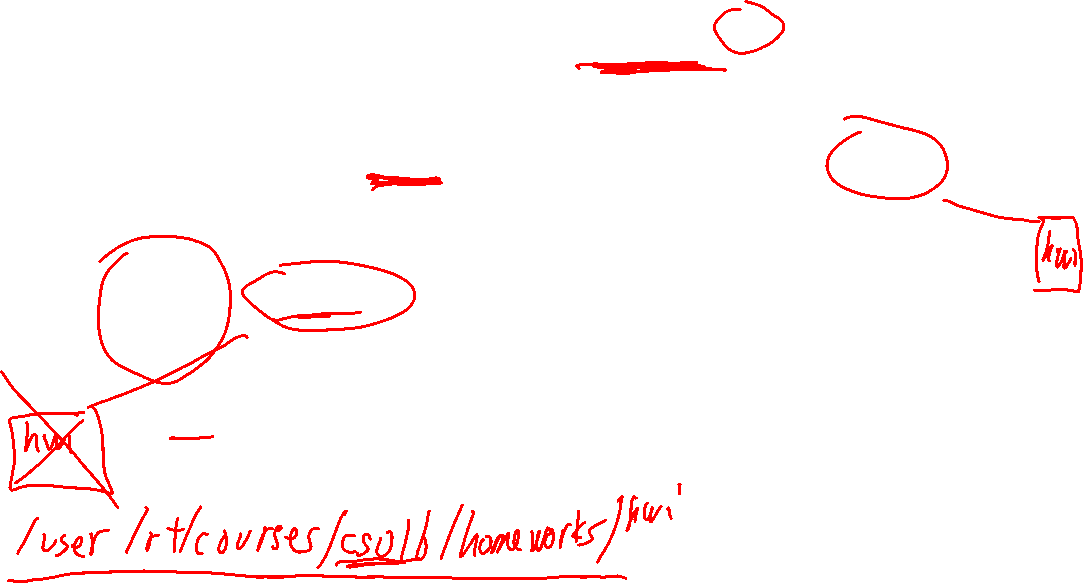 hw1
hw1
/user/rt/courses/cs016/homeworks/hw1